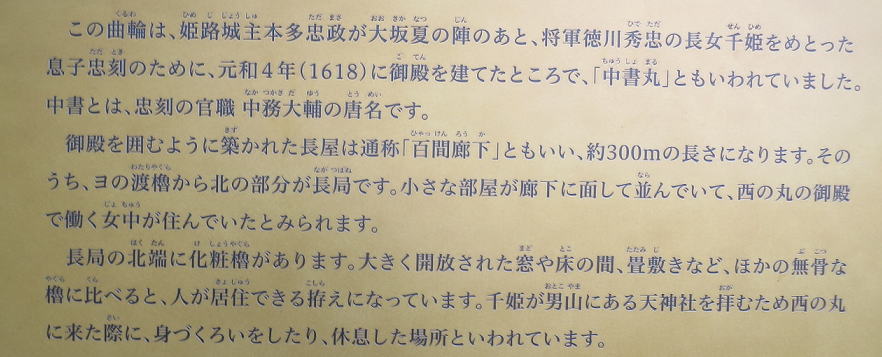 この曲輪は、姫路城主本多忠政が大坂夏の陣のあと、将軍徳川秀忠の長女千姫をめとった
息子忠刻のために、元和4年(1618)に御殿を建てたところで、「中書丸」ともいわれていました。
中書とは、忠刻の官職 中務大輔の唐名です。
御殿を囲むように築かれた長屋は通称「百間廊下」ともいい、約300mの長さになります。その
うち、ヨの渡櫓から北の部分が長局です。小さな部屋が廊下に面して並んでいて、西の丸の御殿
で働く女中が住んでいたとみられます。
長局の北端に化粧櫓があります。大きく開放された窓や床の間、畳敷きなど、ほかの無骨な
櫓に比べると、人が居住できる拵えになっています。千姫が男山にある天神社を拝むため西の丸
に来た際に、身づくろいをしたり、休息した場所といわれています。